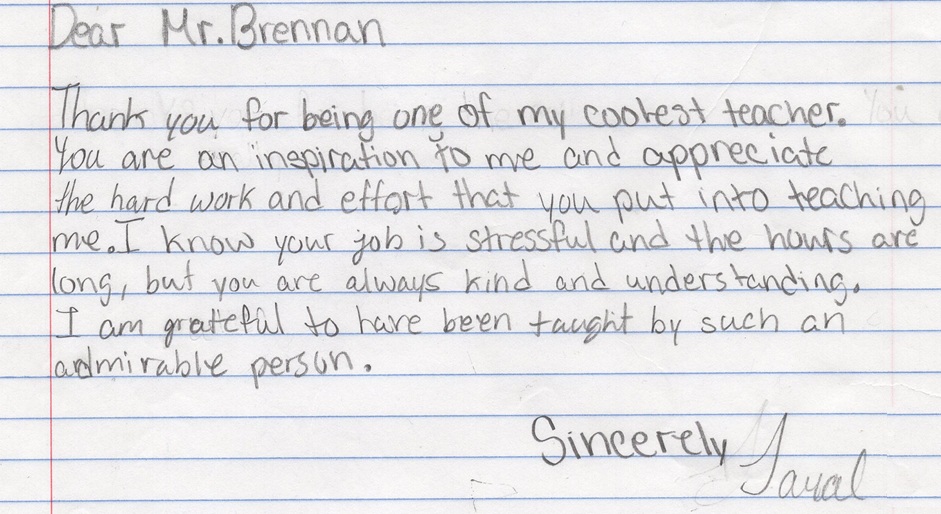 Dear Mr. Brennan
Thank you for being one of my coolest teacher.
You are an inspiration to me and appreciate
the hard work and effort that you put into teaching
me. I know your job is stressful and the hours are
long, but you are always kind and understanding.
I am grateful to have been taught by such an
admirable person.
Sincerely